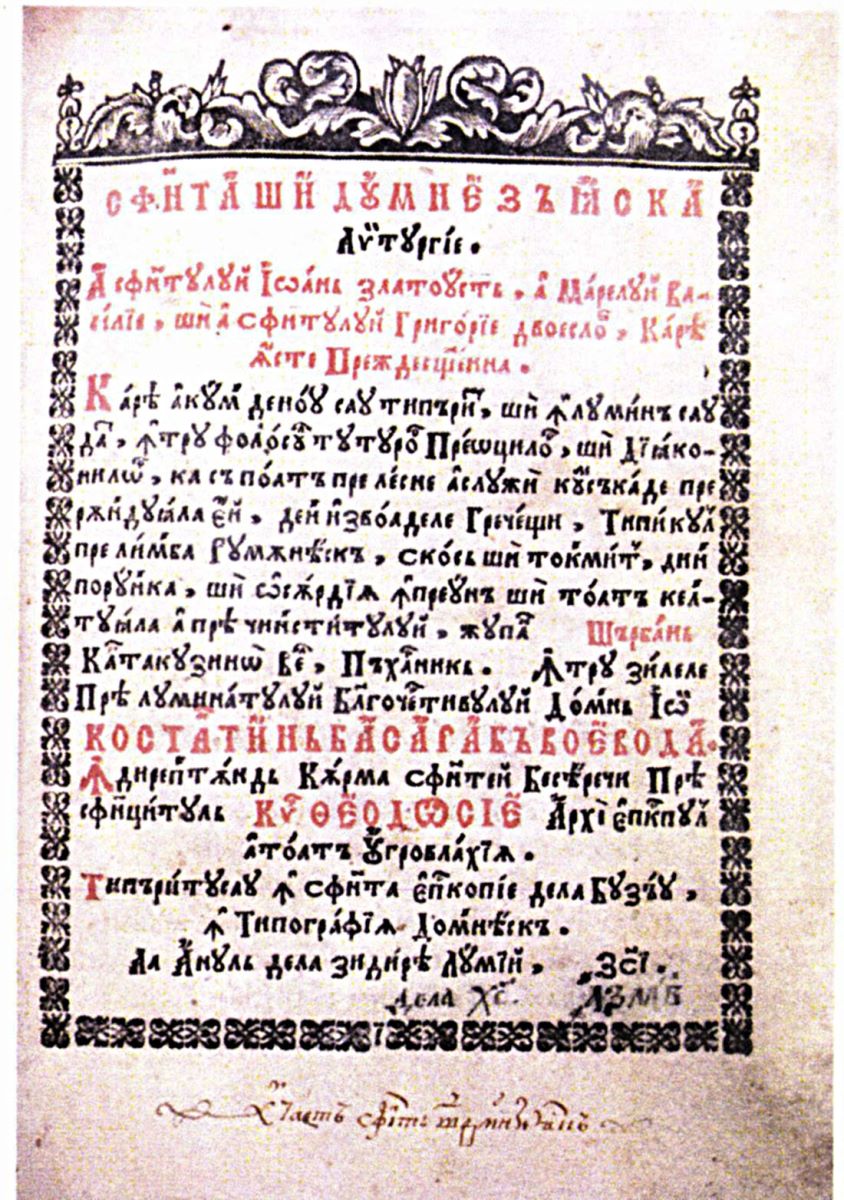 СФЙ́ТА̑ ШЙ́ ДꙊ́МНЕЁЗѢꙖ́СКА̑
Лѵ̈тꙋргі́е.
А̑ сфи́нтꙋлꙋй І҆ѡа́нь златоꙋ́сть, а҆ Ма́релꙋй Ва-
си́лїе, шѝ а҆ сфинтꙋлꙋй Григо́рїе двоесло́в, Ка́рѣ
ꙗ҆́сте Преждесщ҃е́нна.
Ка́рѣ а҆кꙋ́м де но́ꙋ саꙋ типъри́т, шѝ ꙟ҆ лꙋми́нъ саꙋ
да́т, ꙟ҆трꙋ фоло́сꙋл тꙋтꙋро́р Прео́ѡцилѡр, шѝ Дїа́ко-
нилѡр, ка съ по́атъ пре ле́сне а҆ слꙋжѝ кꙋ́съ каде пре
ржндꙋꙗ́ла є҆́й, де́й и҆зво́аделе Грече́щи, Типи́кꙋл
пре ли́мба Рꙋмѫнѣ́скъ, ско́сь шѝ токми́т, ди́н
порꙋ́нка, шѝ ѡ҆сѫ́рдїѧ ꙟ҆преꙋ́нъ шѝ то́атъ кел-
тꙋꙗ́ла а҆ прѣ чи́нститꙋлꙋй, жꙋпа́н Шърба́нь
Ка́нтакꙋзинѡ̀ Ве́л, Пъха́рникь. Ꙟ҆́трꙋ зи́леле
Прѣ лꙋмина́тꙋлꙋй Бл҃гоче́стивꙋлꙋй До́мнь І҆ѡ҃
КОСТАТИ́НЬ БАСАРАБЪ ВОЕВОДА.
Ꙟ҆дирептѫндь Кѫ́рма сфи́нтей Бесѣ́речи Прѣ
сфинци́тꙋль Кѵ́р ѲЕОДѠСІЕ А҆рхїєп҃кпꙋл
а҆ то́атъ Оу҆гровла́хїѧ.
Типъри́тꙋсаꙋ ꙟ҆ сфи́нта є҆п҃копі́е дела Бꙋзъ́ꙋ,
ꙟ҆ Типогра́фїѧ Домнѣ́скъ.
Ла А҆́нꙋль дела зиди́рѣ Лꙋ́мїй, ҂ЗСІ.
дела Хс.